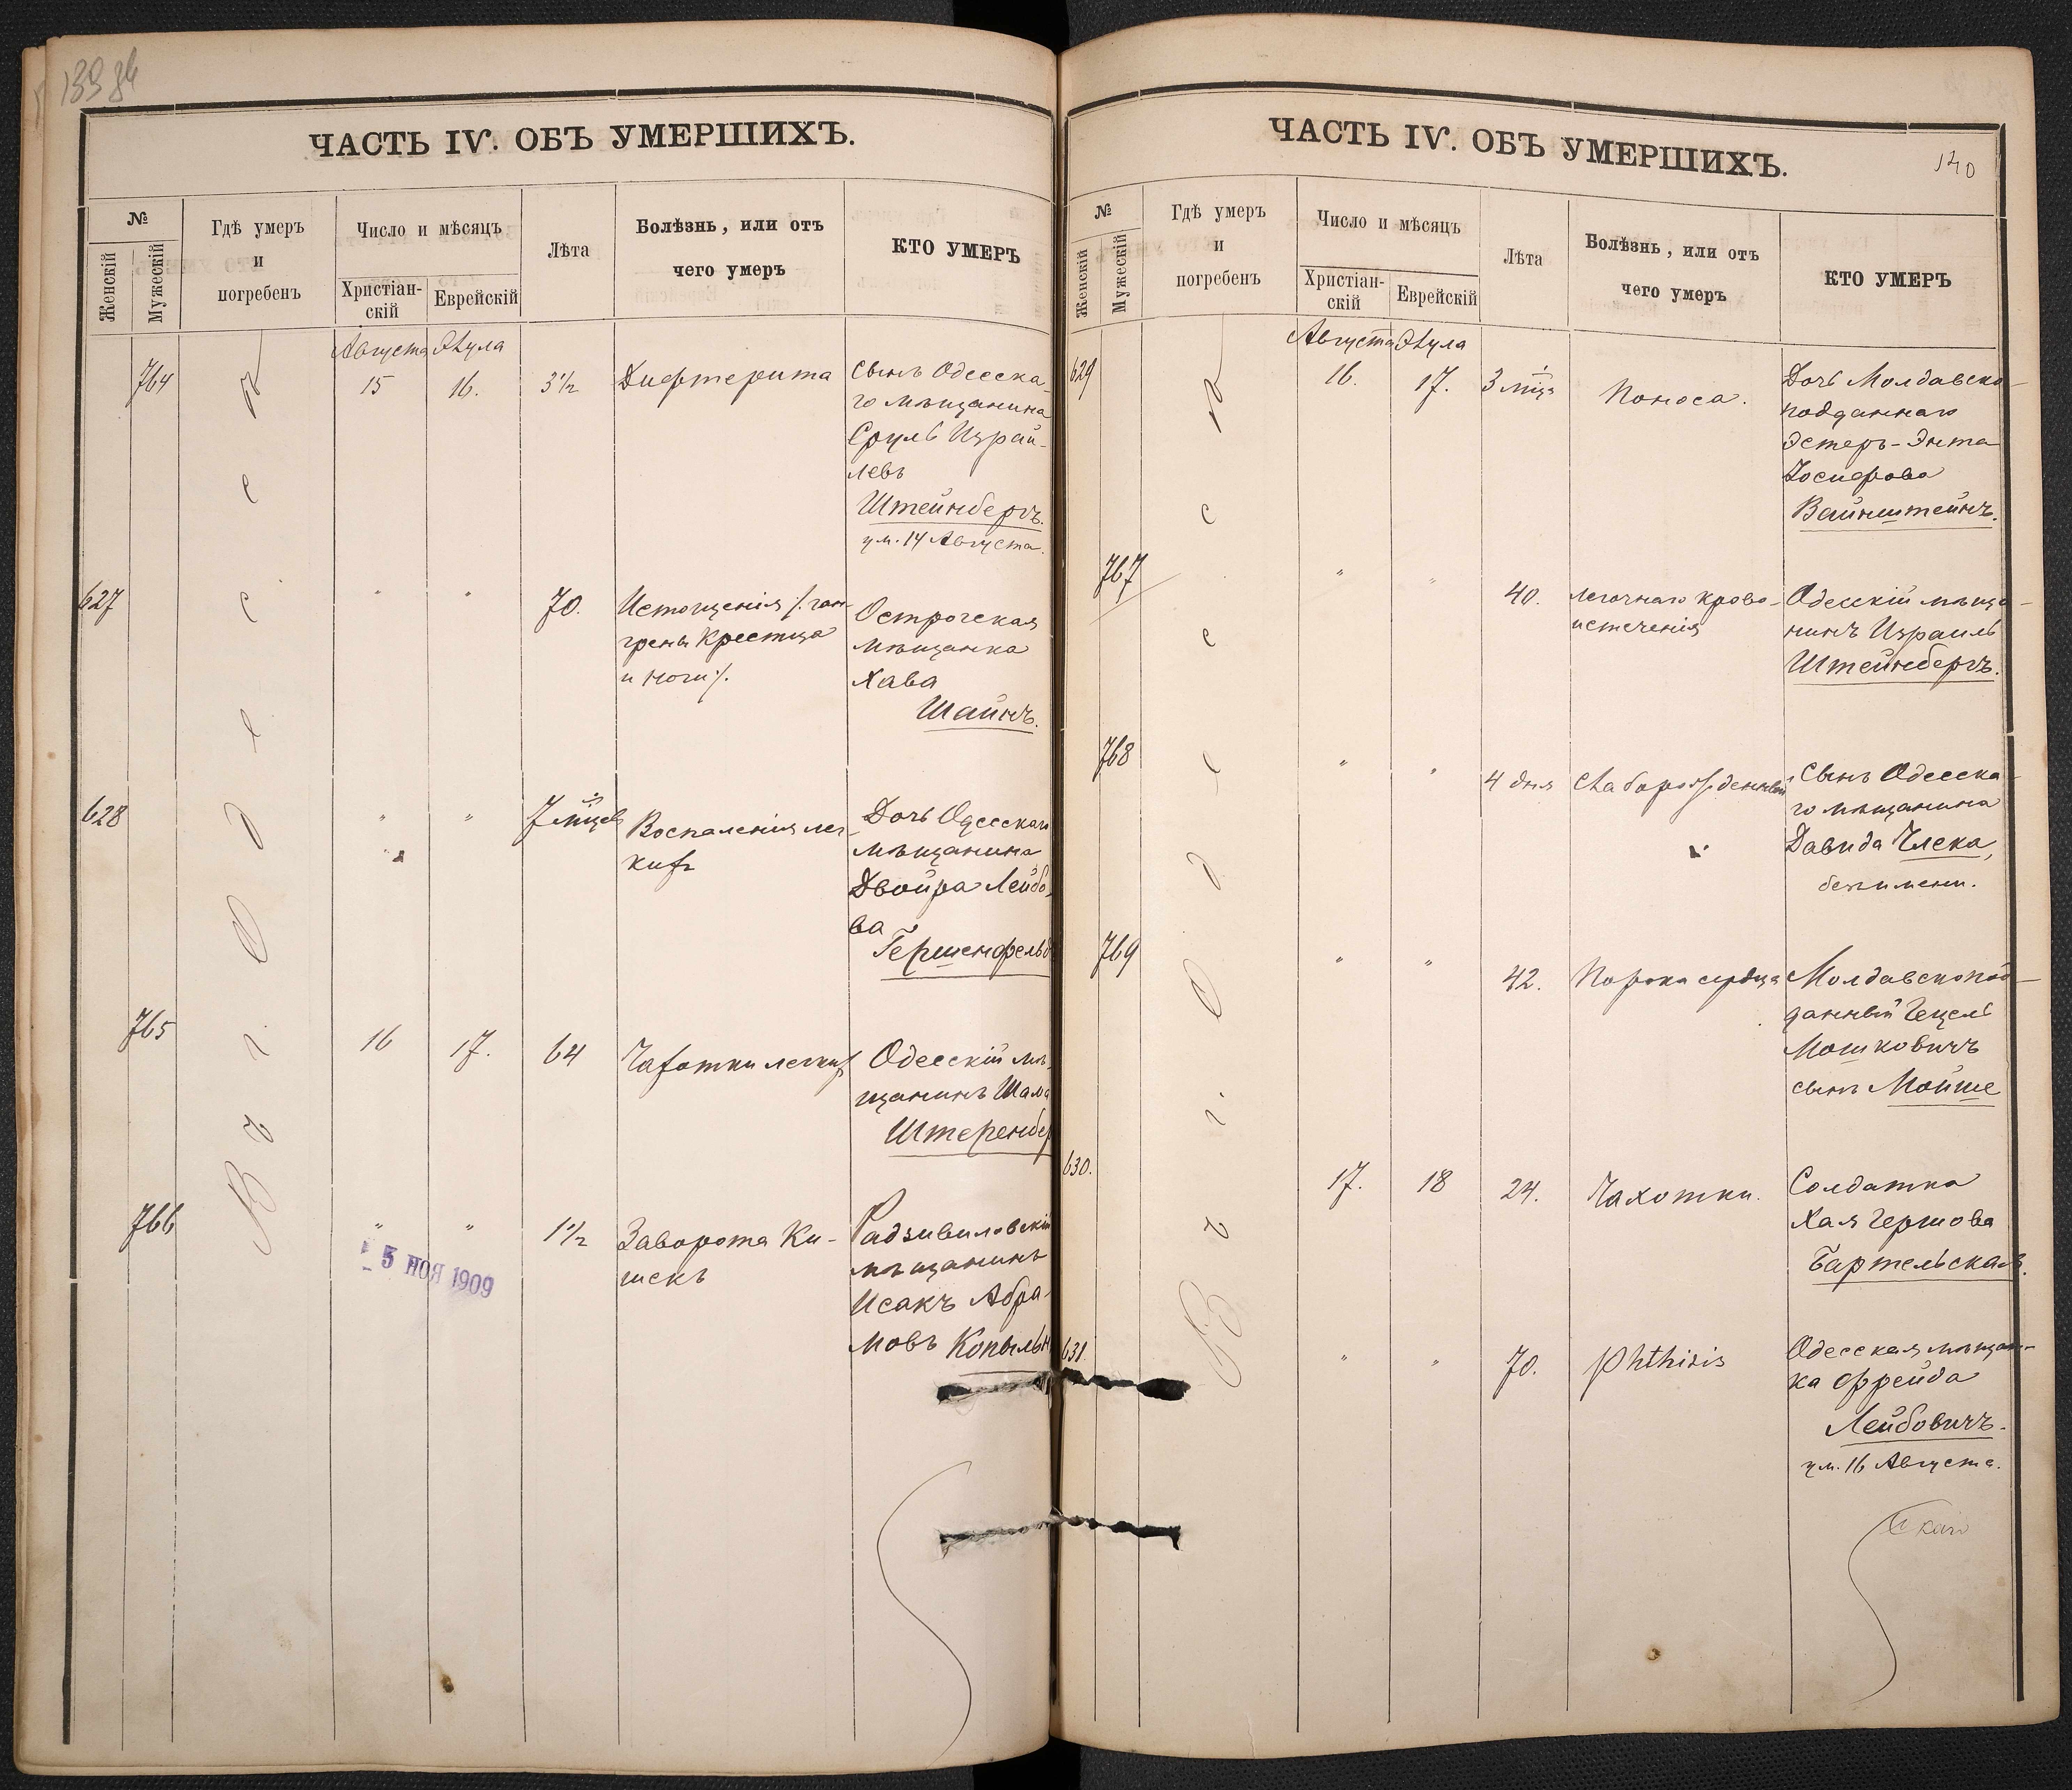 139 зв
ЧАСТЬ IV. ОБЪ УМЕРШИХЪ.
№
Женскій
Мужескій
Гдѣ умеръ
и
погребенъ
Число и мѣсяцъ
Христіан-
скій
Еврейскій
Лѣта
Болѣзнь, или отъ
чего умеръ
КТО УМЕРЪ
Августа Элула
В г. Одессѣ
764
15
16.
3 1/2
Дифтерита
Сынъ Одесска-
го мѣщанина
Сруль Израи-
левъ
Штейнбергъ.
ум. 14 Августа.
627
"
"
70.
Истощенія /: ган-
грены Крестца
и ноги :/.
Острогская
мѣщанка
Хава
Шайнъ.
628
"
"
7 мѣцевъ
Воспаленія лег-
кихъ
Дочь Одесскаго
мѣщанина
Двойра Лейбо-
ва
Гершенфельд
765
16
17.
64
Чахотки легкихъ
Одесскій мѣ-
щанинъ Шама
Штеренбер
766
"
"
1 1/2
Заворота Ки-
шекъ
Радзивиловскій
мѣщанинъ
Исакъ Абра-
мовъ Копыльн
5 НОЯ 1909
140
ЧАСТЬ IV. ОБЪ УМЕРШИХЪ.
№
Женскій
Мужескій
Гдѣ умеръ
и
погребенъ
Число и мѣсяцъ
Христіан-
скій
Еврейскій
Лѣта
Болѣзнь, или отъ
чего умеръ
КТО УМЕРЪ
Августа Элула
В г. Одессѣ
629
16.
17.
3 мца
Поноса.
Дочь Молдавско-
подданнаго
Эстеръ-Энта
Іосифова
Вайнштейнъ.
767
"
"
40.
Легочнаго крово-
истеченія
Одесскій мѣща-
нинъ Израиль
Штейнбергъ.
768
"
"
4 дня
Слаборожденный
Сынъ Одесска-
го мѣщанина
Давида Члека,
безъ имени.
769
"
"
42.
Порока сердца
Молдавскопод-
данный Гецель
Мошковичъ
сынъ Мойше
630.
17.
18
24.
Чахотки.
Солдатка
Хая Гершова
Бартельская.
631.
"
"
70.
Phthisis
Одесская мѣщан-
ка Фрейда
Лейбовичъ.
ум. 16 Августа.